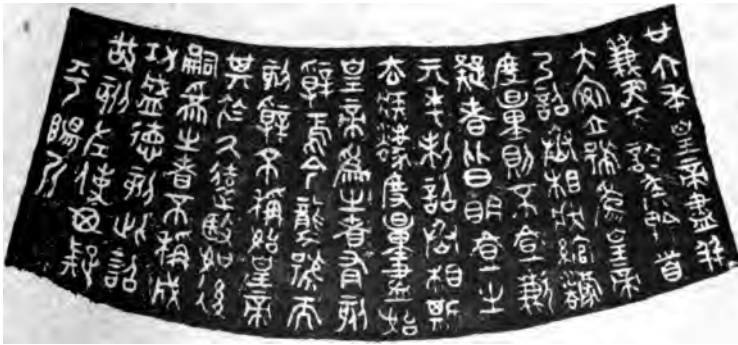 廿六年皇帝盡并
兼天下諸矦黔首
大安立號為皇帝
乃詔丞相狀綰灋
度量則不壹歉
疑者皆明壹之
元年制詔丞相斯
去疾灋度量盡始
皇帝為之者有刻
辭焉今襲號而
刻辭不稱始皇帝
其於久遠殹如後
嗣為之者不稱成
功盛德刻此詔
故刻左使毋疑
平陽斤